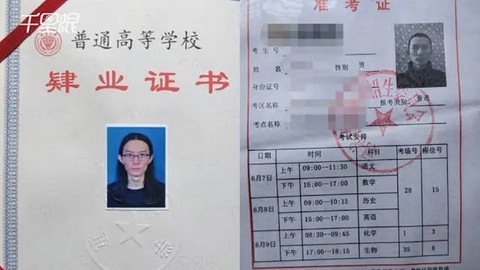 千里眼
普通高等学校
肄业证书
准考证
考生号
姓名 性别 男
身份证号
考区名称 报考类别 普通
考点名称
考试安排
日期 时间 科目 考场号 座位号
6月7日 上午 09:00--11:30 语文 28 15
下午 15:00--17:00 数学
6月8日 上午 09:00--10:15 历史
下午 15:00--17:00 英语
6月9日 上午 08:30--09:45 化学 1 3
下午 17:00--18:15 生物 35 8